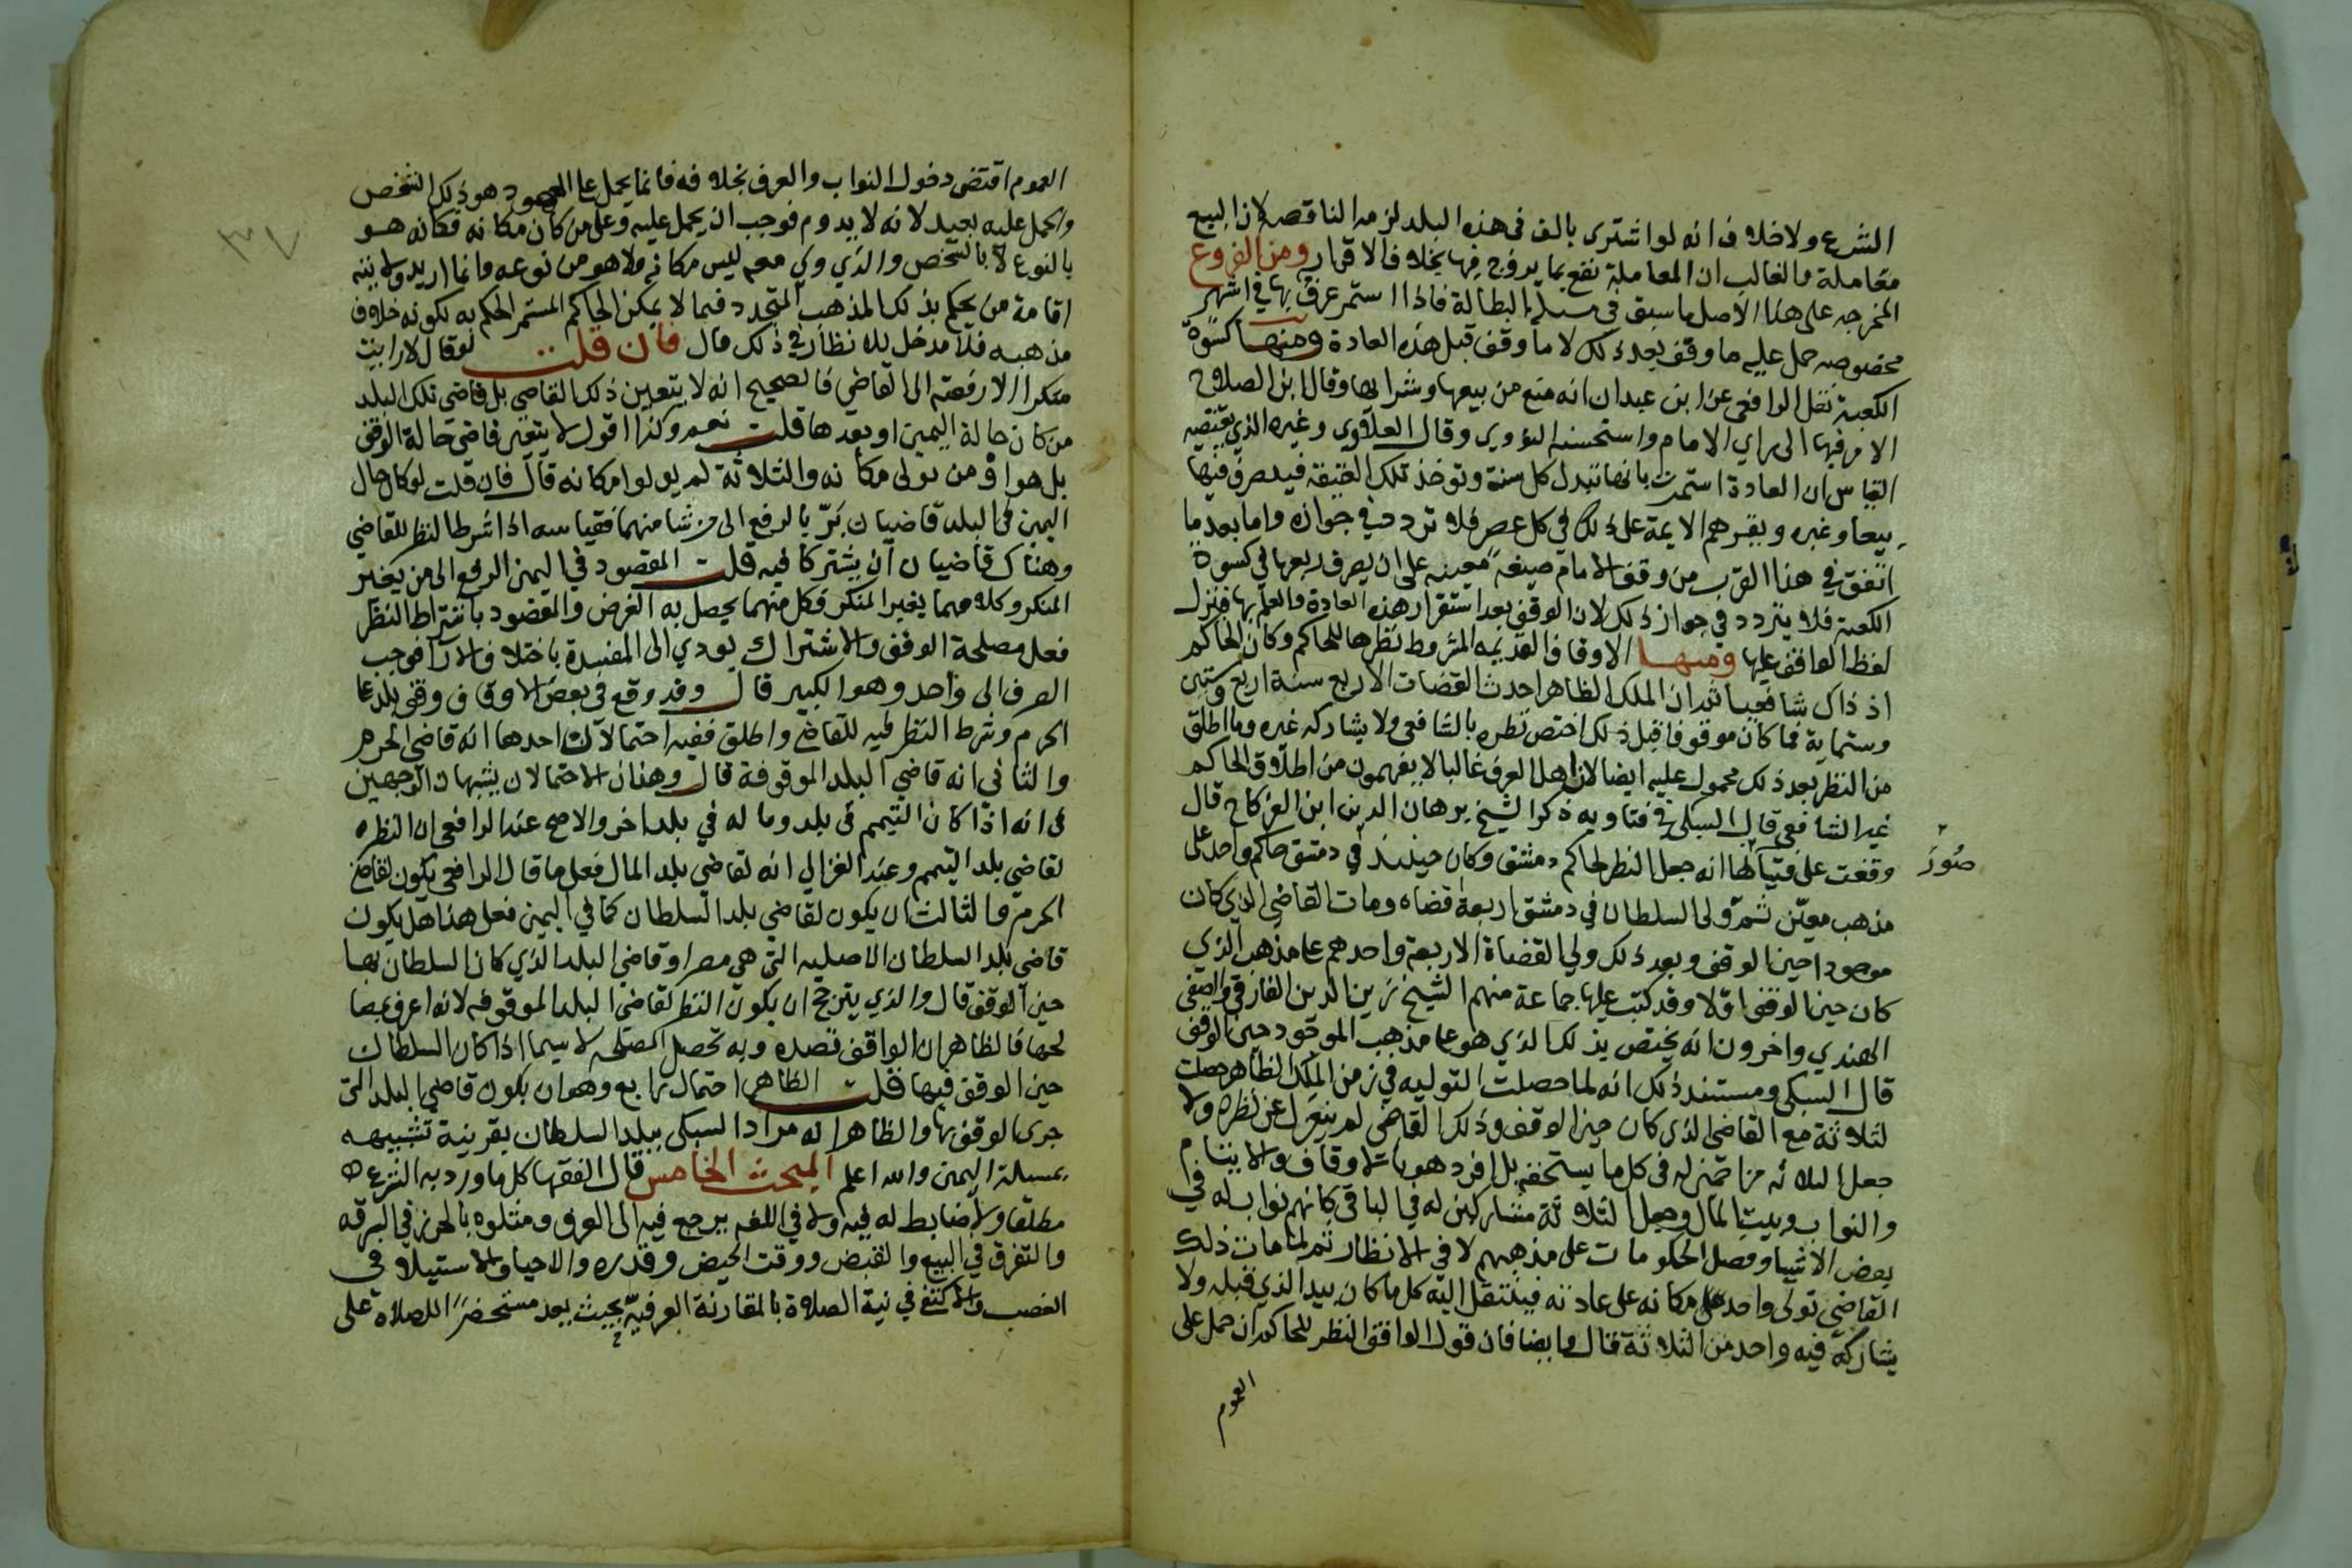 الشرع ولا خلاف انه لو اشترى بالف فى هذه البلد لزمه الناقصه لان البيع
معاملة والغالب ان المعاملة تقع بما يروج فيها بخلاف الاقرار ومن الفروع
المخرجه على هذا الاصل ما سبق في مسئلة البطالة فاذا استمر عرف بها في اشهر
مخصوصه حمل عليه ما وقف بعد ذلك لا ما وقف قبل هذه العادة ومنها كسوة
الكعبة نقل الرافعى عن ابن عبدان انه منع من بيعها وشرائها وقال ابن الصلاح
الامر فيها الى راي الامام واستحسنه النووي وقال العلاوى وغيره الذي يقتضيه
القياس ان العادة استمرت بانها تبدل كل سنة وتوخذ تلك العتيقة فيتصرف فيها
بيعا وغيره وبقرهم الايمة على ذلك في كل عصر فلا تردد في جوازه واما بعد ما
اتفق في هذا القرب من وقف الامام ضيعة معينه على ان يصرف ريعها في كسوة
الكعبة فلا يتردد في جواز ذلك لان الوقف بعد استقرار هذه العادة والعلم بها فنزل
لفظ الواقف عليها ومنها الاوقاف القديمه المشروط نظرها للحاكم وكان الحاكم
اذ ذاك شافعيا ثم ان الملك الظاهر احدث القضات الاربع سنة اربع وستين
وستماية فما كان موقوفا قبل ذلك اختص نظره بالشافعى ولا يشاركه غيره وما اطلق
من النظر بعد ذلك محمول عليه ايضا لان اهل العرف غالبا لا يفهمون من اطلاق الحاكم
غير الشافعى قال السبكى فى فتاويه ذكر الشيخ برهان الدين ابن الفركاح قال
صُور
وقفت على فتيا لها انه جعل النظر لحاكم دمشق وكان حينئذ في دمشق حاكم واحد على
مذهب معين ثم ولى السلطان في دمشق اربعة قضاه ومات القاضي الذي كان
موجودا حين الوقف وبعد ذلك ولي القضاة الاربعة واحدهم على مذهب الذي
كان حين الوقف اولا وقد كتب عليها جماعة منهم الشيخ زين الدين الفارقي والصفي
الهندي واخرون انه يختص بذلك الذي هو على مذهب الموجود حين الوقف
قال السبكى ومستند ذلك انه لما حصلت التوليه في زمن الملك الظاهر حصلت
لثلاثة مع القاضي الذي كان حين الوقف وذلك القاضى لم ينعزل عن نظره ولا
جعل الثلاثه مزاحمين له فى كل ما يستحقه بل افرد هو بالاوقاف والايتام
والنواب وبيت المال وجعل الثلاثة مشاركين له في الباقي كانهم نواب له في
بعض الاشيا وفصل الحكومات على مذهبهم لا في الانظار ثم لما مات ذلك
القاضى تولى واحد على مكانه على عادته فينتقل اليه كل ما كان بيد الذي قبله ولا
يشاركه فيه واحد من الثلاثة قال وايضا فان قول الواقف النظر للحاكم ان حمل على
العموم
٣٧
العموم اقتضى دخول النواب والعرف بخلافه فانما يحمل على المعهود هو ذلك الشخص
والحمل عليه بعيد لانه لا يدوم فوجب ان يحمل عليه وعلى من كان مكانه فكانه هو
بالنوع لا بالشخص والذي ولي معه ليس مكانه ولا هو من نوعه وانما اريد ولايته
اقامة من يحكم بذلك المذهب المتجدد فيما لا يمكن الحاكم المستمر الحكم به لكونه خلاف
مذهبه فلا مدخل للانظار في ذلك قال فان قلت لو قال لا رايت
منكرا الا رفعته الى القاضي فالصحيح انه لا يتعين ذلك القاضى بل قاضي تلك البلد
من كان حالة اليمين او بعدها قلت نعم وكذا اقول لا يتعين قاضي حالة الوقف
بل هو او من تولى مكانه والثلاثة لم يولوا مكانه قال فان قلت لو كان حال
اليمين فى البلد قاضيان بَرّ بالرفع الى من شا منهما فقياسه اذا شرط النظر للقاضي
وهناك قاضيان ان يشتركا فيه قلت المقصود في اليمين الرفع الى من يغير
المنكر وكلاهما يغير المنكر فكل منهما يحصل به الغرض والمقصود باشتراط النظر
فعل مصلحة الوقف والاشتراك يودي الى المفسدة باختلاف الارآ فوجب
الصرف الى واحد وهو الكبير قال وقد وقع في بعض الاوقاف وقف بلد على
الحرم وشرط النظر فيه للقاضي واطلق ففيه احتمالات احدها انه قاضى الحرم
والثانى انه قاضي البلد الموقوفة قال وهذان الاحتمالان يشبهان الوجهين
في انه اذا كان اليتيم في بلد وما له في بلد اخر والاصح عند الرافعي ان النظر
لقاضي بلد اليتيم وعند الغزالي انه لقاضي بلد المال فعلى ما قال الرافعي يكون لقاضي
الحرم والثالث ان يكون لقاضي بلد السلطان كما في اليمين فعلى هذا هل يكون
قاضي بلد السلطان الاصليه التي هي مصر او قاضي البلد الذي كان السلطان بها
حين الوقف قال والذي يترجح ان يكون النظر لقاضى البلد الموقوفه لانه اعرف بمصا
لحها فالظاهر ان الواقف قصده وبه تحصل المصلحه لا سيما اذا كان السلطان
حين الوقف فيها قلت الظاهر احتمال رابع وهو ان يكون قاضي البلد التى
جرى الوقف بها والظاهر انه مراد السبكى ببلد السلطان بقرينة تشبيهه
بمسئلة اليمين والله اعلم المبحث الخامس قال الفقها كل ما ورد به الشرع
مطلقا ولا ضابط له فيه ولا في اللغه يرجع فيه الى العرف ومثلوه بالحرز في السرقه
والتفرق في البيع والقبض ووقت الحيض وقدره والاحيا والاستيلا فى
الغصب والاكتفا في نية الصلاة بالمقارنة العرفيّة بحيث يعد مستحضرًا للصلاة على